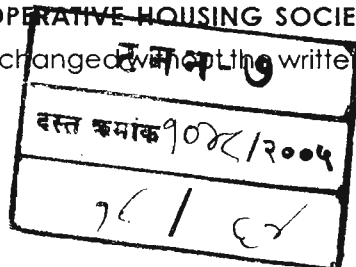 OPERATIVE HOUSING SOCIE
changed without the writte
ट न न - ७
दस्त क्रमांक १०४८/२००५
१८ / ६४